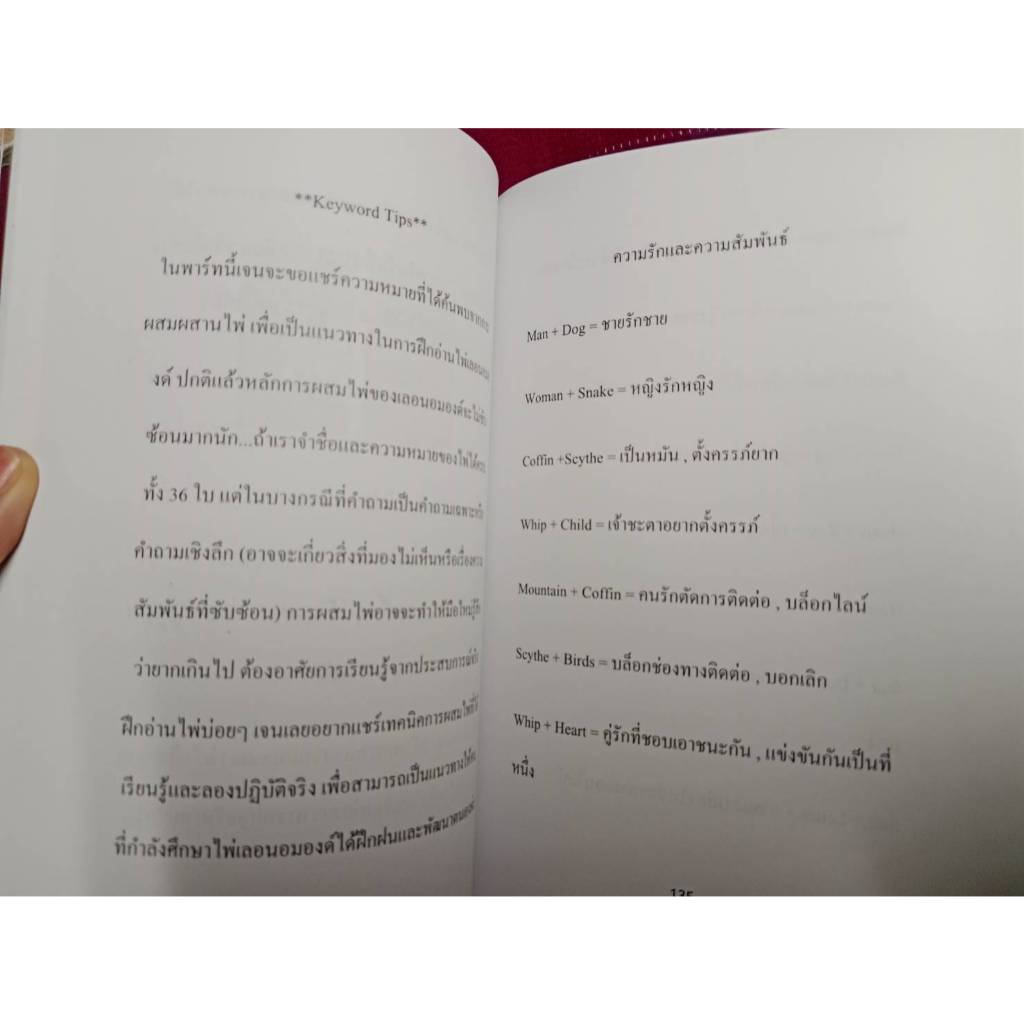 **Keyword Tips**
ในพาร์ทนี้เจนจะขอแชร์ความหมายที่ได้ค้นพบจากการ
ผสมผสานไพ่ เพื่อเป็นแนวทางในการฝึกอ่านไพ่เลอนอม
งค์ ปกติแล้วหลักการผสมไพ่ของเลอนอมองค์จะไม่ซับ
ซ้อนมากนัก...ถ้าเราจำชื่อและความหมายของไพ่ได้ครบ
ทั้ง 36 ใบ แต่ในบางกรณีที่คำถามเป็นคำถามเฉพาะหรือ
คำถามเชิงลึก (อาจจะเกี่ยวสิ่งที่มองไม่เห็นหรือเรื่องความ
สัมพันธ์ที่ซับซ้อน) การผสมไพ่อาจจะทำให้มือใหม่รู้สึก
ว่ายากเกินไป ต้องอาศัยการเรียนรู้จากประสบการณ์
ฝึกอ่านไพ่บ่อยๆ เจนเลยอยากแชร์เทคนิคการผสมไพ่ที่ได้
เรียนรู้และลองปฏิบัติจริง เพื่อสามารถเป็นแนวทางให้
ที่กำลังศึกษาไพ่เลอนอมองค์ได้ฝึกฝนและพัฒนา
ความรักและความสัมพันธ์
Man + Dog = ชายรักชาย
Woman + Snake = หญิงรักหญิง
Coffin +Scythe = เป็นหมัน , ตั้งครรภ์ยาก
Whip + Child = เจ้าชะตาอยากตั้งครรภ์
Mountain + Coffin = คนรักตัดการติดต่อ , บล็อกไลน์
Scythe + Birds = บล็อกช่องทางติดต่อ , บอกเลิก
Whip + Heart = คู่รักที่ชอบเอาชนะกัน , แข่งขันกันเป็นที่
หนึ่ง
135